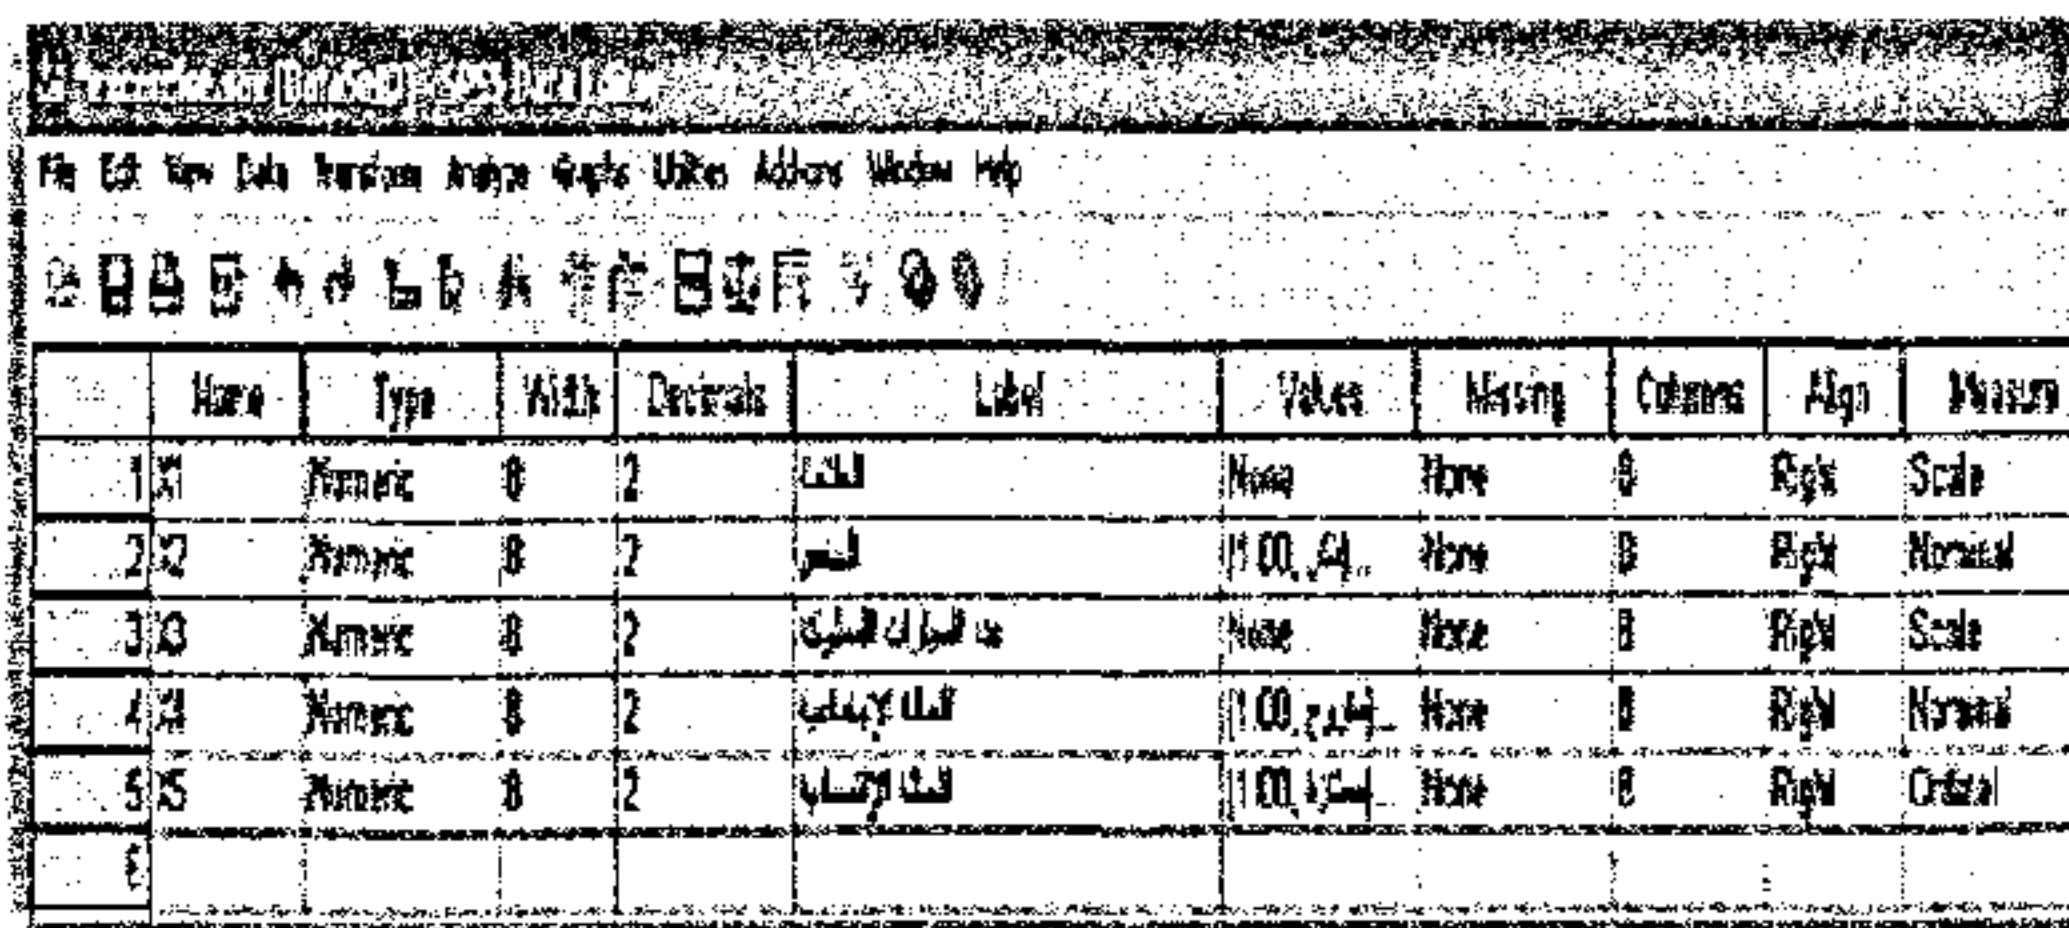 [DataSet0] - SPSS Data Editor
File Edit View Data Transform Analyze Graphs Utilities Add-ons Window Help
Name Type Width Decimals Label Values Missing Columns Align Measure
1 X1 Numeric 8 2 None None 8 Right Scale
2 X2 Numeric 8 2 الجنس {1.00, ذكر}... None 8 Right Nominal
3 X3 Numeric 8 2 عدد السيارات المملوكة None None 8 Right Scale
4 X4 Numeric 8 2 الحالة الإجتماعية {1.00, متزوج}... None 8 Right Nominal
5 X5 Numeric 8 2 الحالة الإقتصادية {1.00, ممتازة}... None 8 Right Ordinal
6